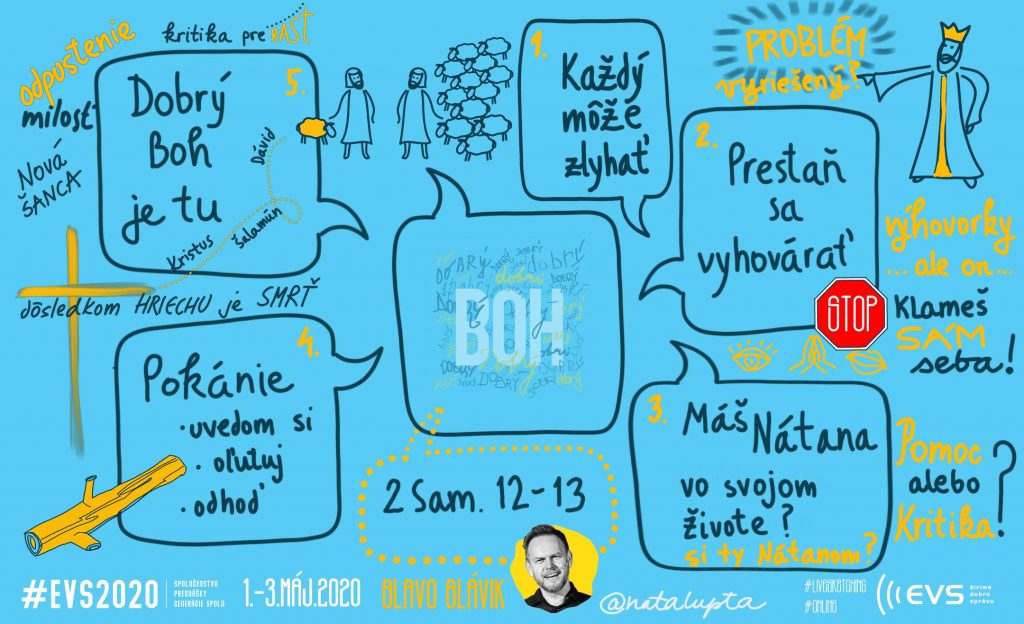 odpustenie
milosť
Nová
ŠANCA
kritika pre RAST
5.
Dobrý
Boh
je tu
Dávid
Šalamún
Kristus
dôsledkom HRIECHU je SMRŤ
1.
Každý
môže
zlyhať
PROBLÉM
vyriešený?
2.
Prestaň
sa
vyhovárať
výhovorky
... ale on...
STOP
Klameš
SÁM
seba!
BOH
DOBRÝ
dobrý
3.
Máš Nátana
vo svojom
živote?
si ty Nátanom?
Pomoc
alebo
Kritika?
4.
Pokánie
• uvedom si
• oľutuj
• odhoď
2 Sam. 12-13
#EVS2020
SPOLOČENSTVO
PREDNÁŠKY
GENERÁCIE SPOLU
1.-3.MÁJ.2020
SLAVO SLÁVIK
@natalupta
#LIVESKATCHING
#ONLINE
EVS
šírime
dobrú
správu